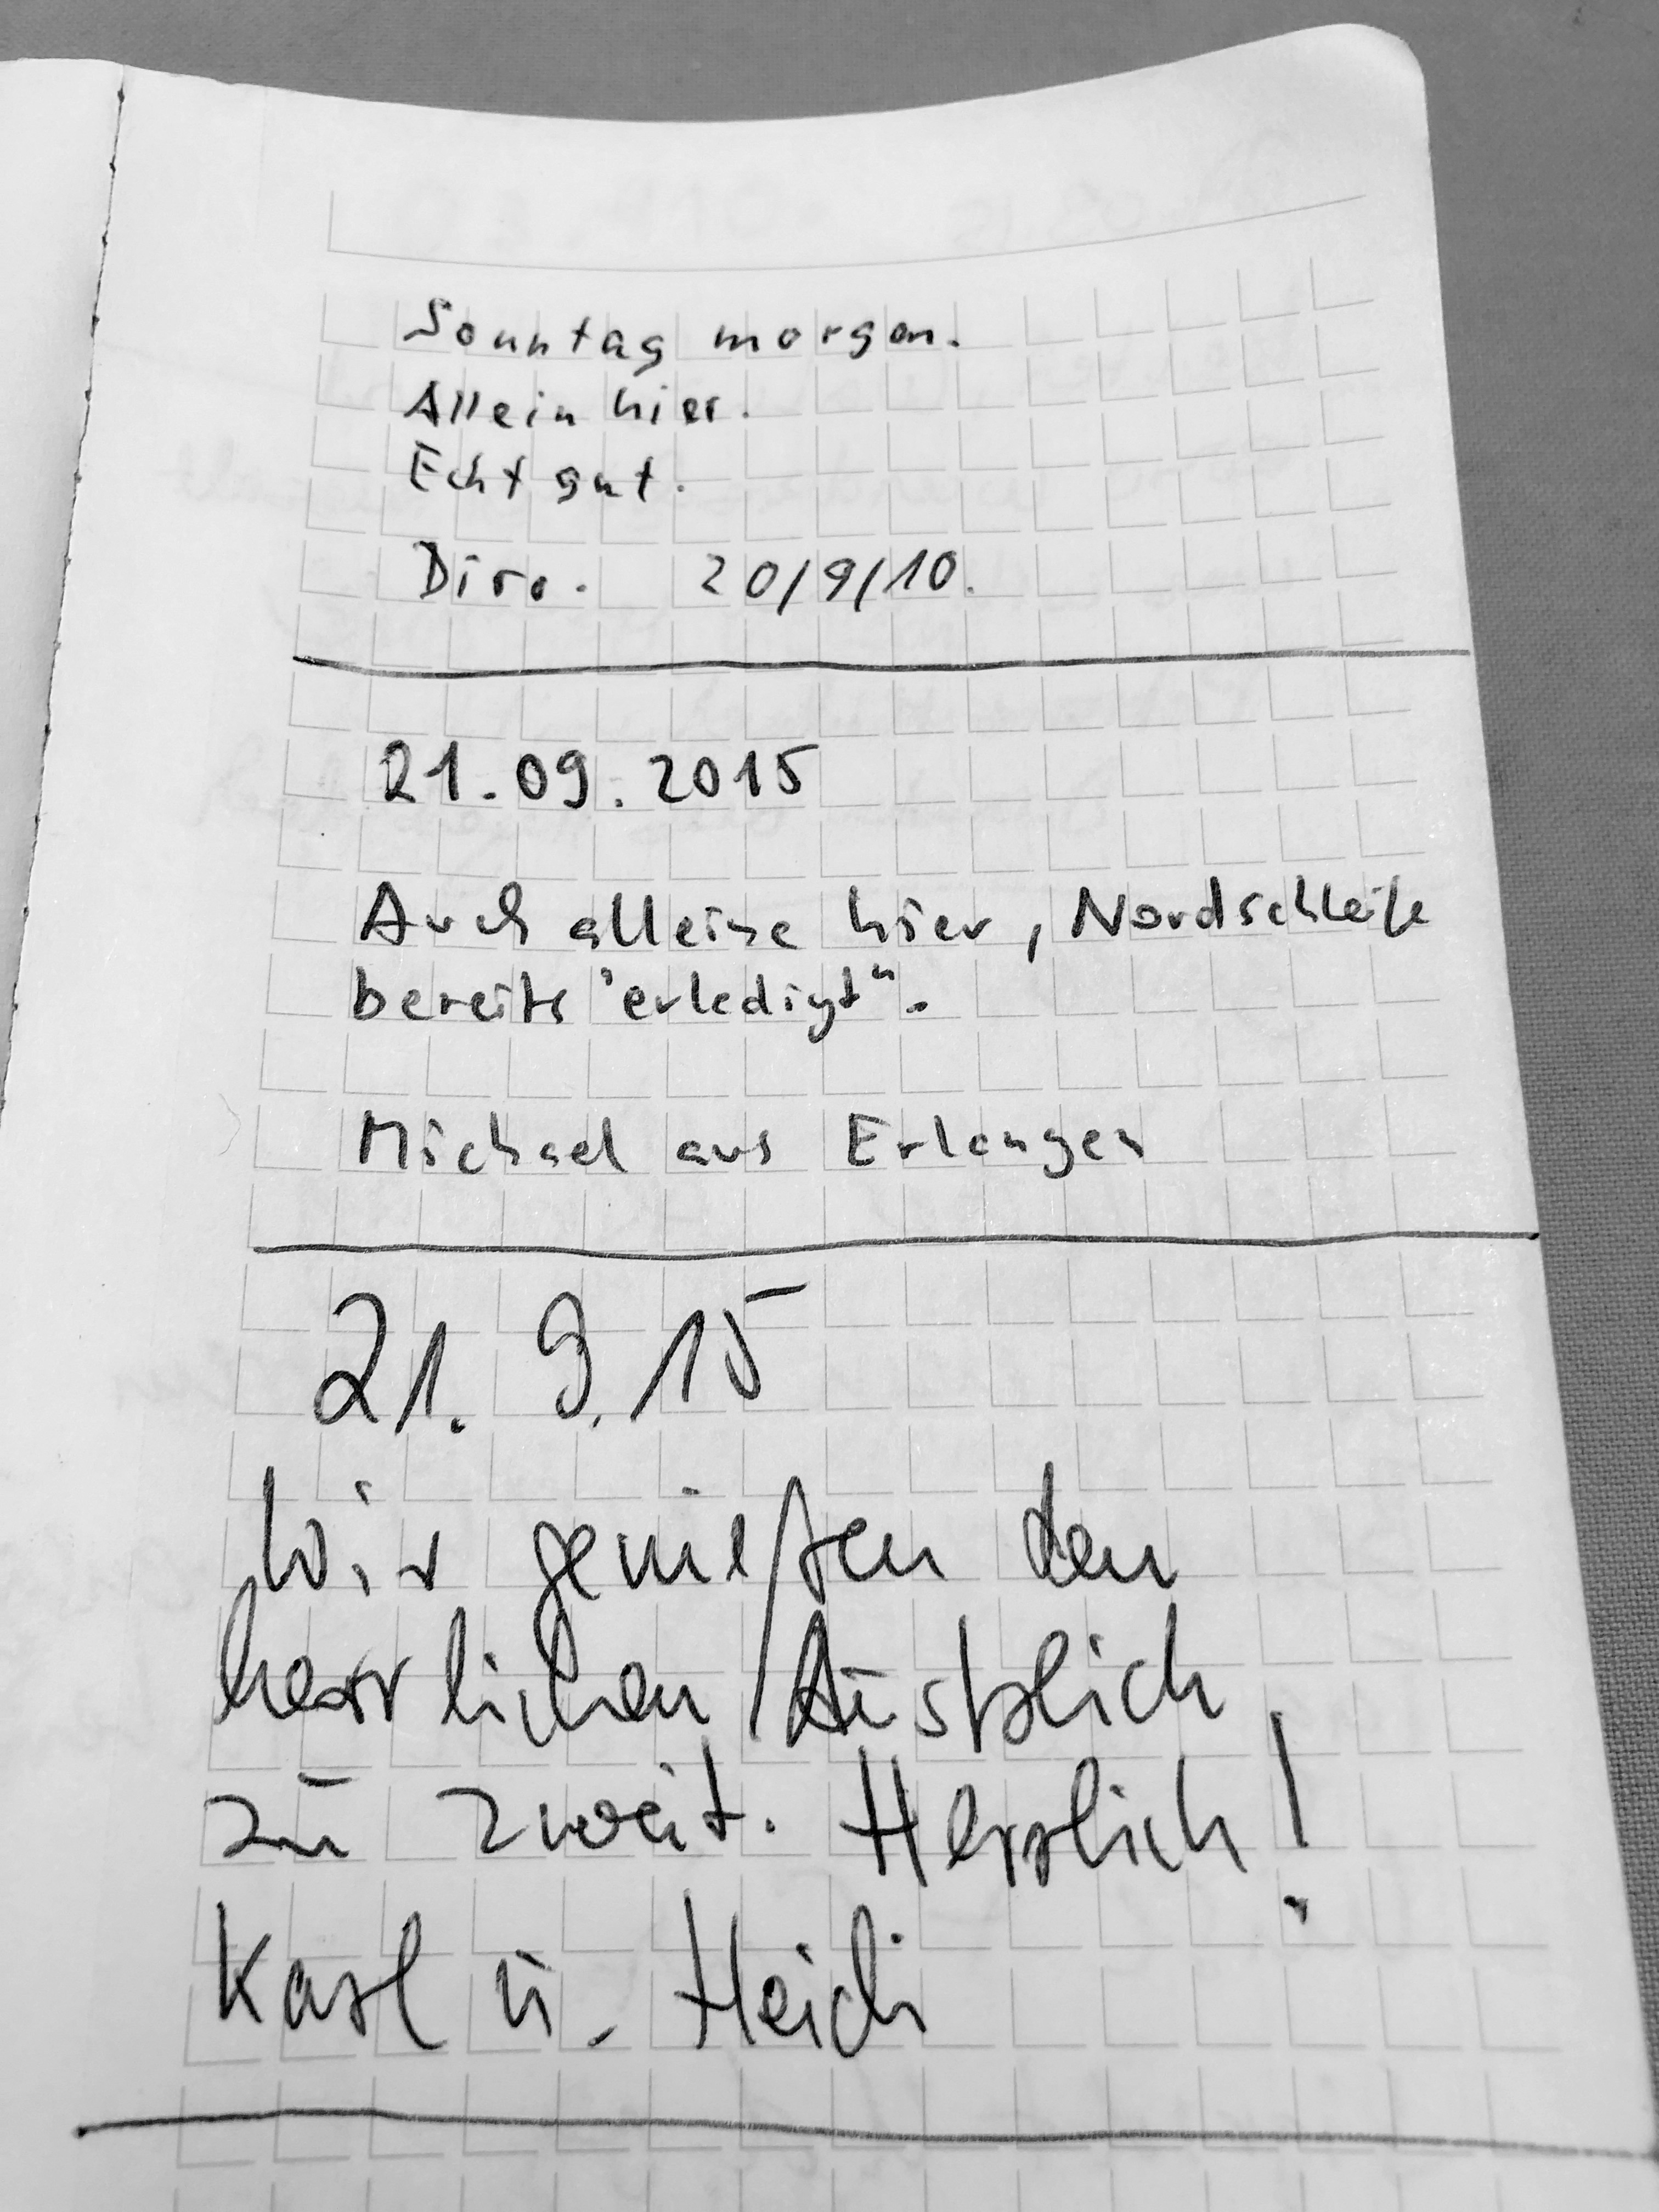 Sonntag morgen.
Allein hier.
Echt gut.
20/9/10.
21.09.2015
Auch alleine hier, Nordschleife
bereits "erledigt".
Michael aus Erlangen
21.9.15
Wir genießen den
herrlichen Ausblick
zu zweit. Herrlich!
Karl u. Heidi